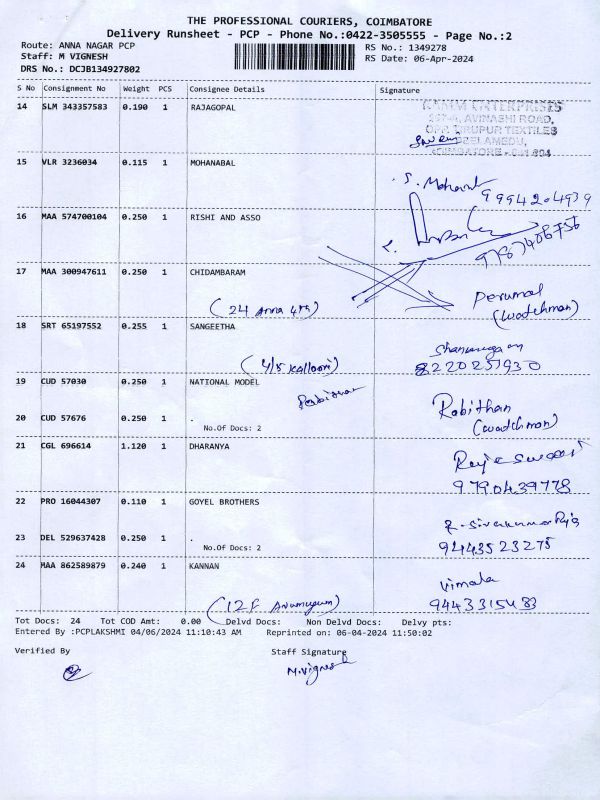 THE PROFESSIONAL COURIERS, COIMBATORE
Delivery Runsheet - PCP - Phone No.:0422-3505555 - Page No.:2
Route: ANNA NAGAR PCP RS No.: 1349278
Staff: M VIGNESH RS Date: 06-Apr-2024
DRS No.: DCJB134927802
S No Consignment No Weight PCS Consignee Details Signature
14 SLM 343357583 0.190 1 RAJAGOPAL
ENTERPRISES
AVINASHI ROAD,
OPP. TIRUPUR TEXTILES
PEELAMEDU,
COIMBATORE - 641 004
15 VLR 3236034 0.115 1 MOHANABAL
S. Mohan
9994204939
16 MAA 574700104 0.250 1 RISHI AND ASSO
9787406756
17 MAA 300947611 0.250 1 CHIDAMBARAM
Perumal
(24 Anna 4th) (watchman)
18 SRT 65197552 0.255 1 SANGEETHA
Shanmugam
(4/5 Kalloori) 8220257930
19 CUD 57030 0.250 1 NATIONAL MODEL
Rabithan
20 CUD 57676 0.250 1 .
(watchman)
No.Of Docs: 2
21 CGL 696614 1.120 1 DHARANYA
Rajeswari
9790439778
22 PRO 16044307 0.110 1 GOYEL BROTHERS
R. Sivakumar Raja
23 DEL 529637428 0.250 1 .
9443523275
No.Of Docs: 2
24 MAA 862589879 0.240 1 KANNAN
Vimala
(12F Arumugam) 9443315483
Tot Docs: 24 Tot COD Amt: 0.00 Delvd Docs: Non Delvd Docs: Delvy pts:
Entered By :PCPLAKSHMI 04/06/2024 11:10:43 AM Reprinted on: 06-04-2024 11:50:02
Verified By Staff Signature
M.Vignesh